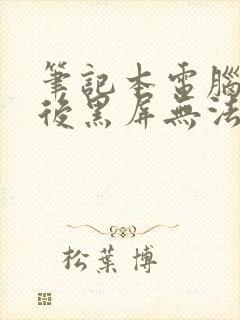 筆記本電腦
後黑屏無法
松葉博